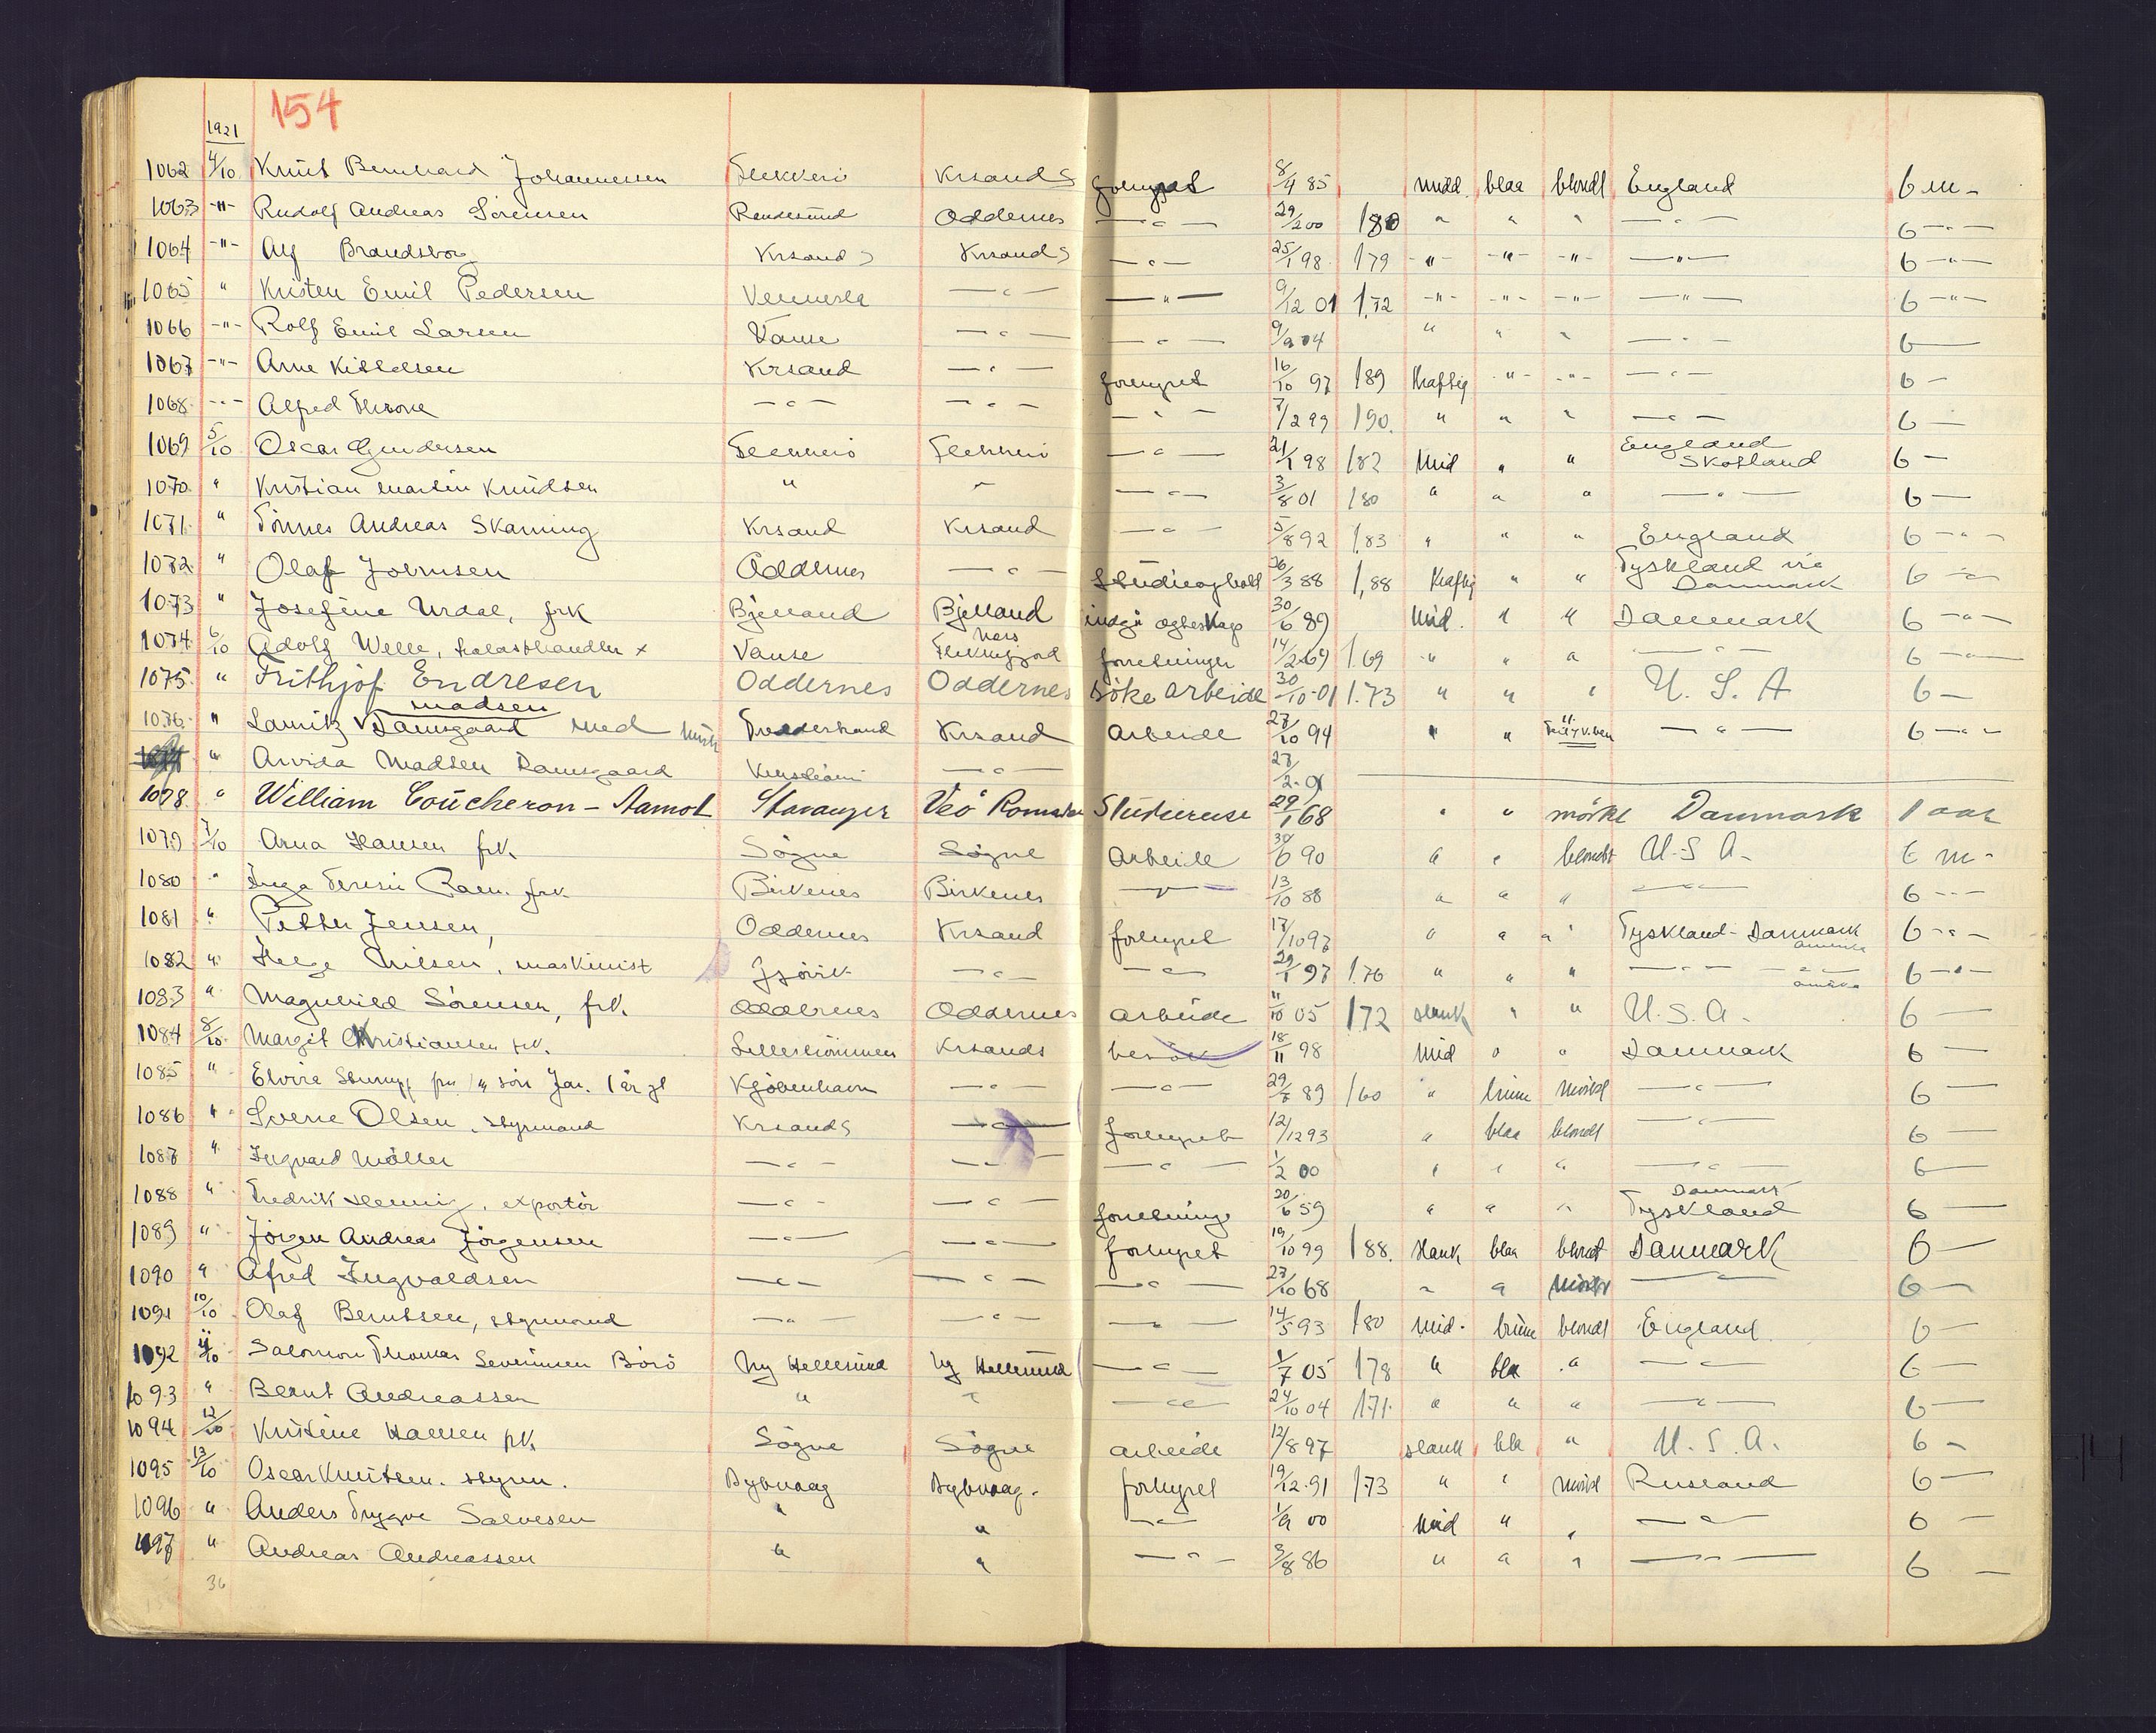 154
1921
1062 4/10 Knut Bernhard Johannessen Flekkerö Krsand S forhyret 8/4 85 midd. blaa blondt England 6 m -
1063 -"- Rudolf Andreas Sörensen Randesund Oddernes — " — 29/2 00 180 " " " — " — 6 — " —
1064 -"- Alf Brandsbor Krsand S Krsand S — " — 25/1 98 179 -"- -"- -"- — " — 6 — " —
1065 " Kristen Emil Pedersen Vennesla — " — — " — 9/12 01 1,72 -"- -"- -"- — " — 6 — " —
1066 -"- Rolf Emil Larsen Vanse — " — — " — 9/9 04 " " " — " — 6 —
1067 -"- Arne Kittelsen Krsand — " — forhyret 16/10 97 189 Kraftig -"- -"- — " — 6 —
1068 -"- Alfred Throne — " — — " — — " — 7/2 99 190. " " " — " — 6 —
1069 5/10 Oscar Gundersen Flekkerö Flekkerö — " — 21/1 98 182 Mid " " England Skotland 6 —
1070 " Kristian Martin Knudsen " " — " — 3/8 01 180 " " " — " — 6 —
1071 " Tönnes Andreas Skarning Krsand Krsand — " — 5/8 92 1,83 " " " England 6 — " —
1072 " Olaf Joernsen Oddernes — " — Studieophold 26/3 88 1,88 Kraftig " " Tyskland via Danmark 6 — " —
1073 " Josefine Urdal, frk Bjelland Bjelland indgå ægteskap 30/6 89 Mid. " " Danmark 6 — " —
1074 6/10 Adolf Welle, trælasthandler x Vanse Flekkefjord forretninger 14/2 69 1.69 " " " — " — 6 — " —
1075 " Frithjof Endresen Oddernes Oddernes söke arbeide 30/10-01 1.73 " " " U. S. A 6 —
1076 " Lauritz Madsen Damsgaard med Krsand arbeide 27/10 94 " " — " — 6 — " —
" Arvida Madsen Damsgaard — " — 27/2-01
1078 " William Coucheron - Aamot Stavanger Veö Romsdal Studiereise 29/1 68 " " mörke Danmark 1 aar
1079 7/10 Anna Hansen frk. Sögne Sögne arbeide 30/6 90 " " blondt U. S A - 6 m -
1080 " Inga Teresie Roen. frk. Birkenes Birkenes — " — 13/10 88 " " " — " — 6 - - -
1081 " Petter Jensen, Oddernes Krsand forhyret 17/10 97 " " " Tyskland - Danmark Amerika 6 - " -
1082 " Helge Nilsen, maskinist Gjövik — " — — " — 29/1 97 1.76 " " " — " — — " — Amerika 6 - " -
1083 " Magnhild Sörensen, frk. Oddernes Oddernes arbeide 11/10 05 172 slank " " U. S. A. 6 —
1084 8/10 Margit Christiansen frk. Lilleströmmen Krsands besök 18/11 98 Mid " " Danmark 6 —
1085 " Elvire Stumpf fru m/ sön Jan. 1 år gl Kjöbenhavn — " — — " — 29/7 89 160 " brune mörkt — " — 6 —
1086 " Sverre Olsen, styrmand Krsand S — " — forhyret 12/12 93 " blaa blondt — " — 6 —
1087 " Ingvard Möller — " — — " — — " — 1/2 00 " " " — " — 6 —
1088 " Fredrik Hennig, exportör — " — — " — forretninge 20/6 59 " " " Danmark Tyskland 6 —
1089 " Jörgen Andreas Jörgensen — " — — " — forhyret 19/10 99 188. slank blaa blondt Danmark 6 —
1090 " Alfred Ingvaldsen — " — — " — — " — 27/10 68 " " mörkt — " — 6 —
1091 10/10 Olaf Berntsen, styrmand — " — — " — — " — 14/5 93 180 mid. brune blondt England. 6 —
1092 11/10 Salomon Thomas Severinsen Börö Ny Hellesund Ny Hellesund — " — 1/7 05 178 " blå " — " — 6 —
1093 " Bernt Andreassen " " — " — 24/10 04 171 " " " — " — 6 —
1094 12/10 Kristine Hansen frk. Sögne Sögne arbeide 12/8 97 slank blå " U. S. A. 6 —
1095 13/10 Oscar Knutsen. styrm. Dybvaag Dybvaag. forhyret 19/12-91 173 " " mörkt Rusland 6 —
1096 " Anders Trygve Salvesen " " — " — 1/9 00 Mid " " — " — 6 —
1097 " Andreas Andreassen " " — " — 3/8 86 " " " — " — 6 —
36